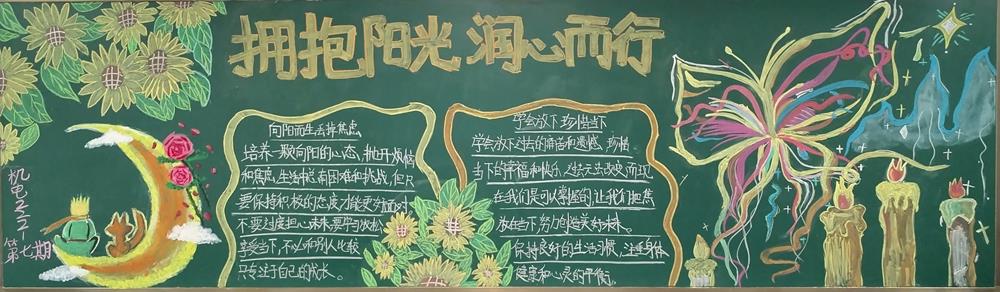 拥抱阳光 润心而行
机电232-1
第七期
向阳而生丢掉焦虑
培养一颗向阳的心态，抛开烦恼
和焦虑。生活中总有困难和挑战，但只
要保持积极的态度才能更好面对
不要过度担心未来，要学习放松
享受当下，不必和别人比较
只专注于自己的成长。
学会放下 珍惜当下
学会放下过去的痛苦和遗憾，珍惜
当下的幸福和快乐，过去无法改变，而现
在我们是可以掌握的，让我们把焦
放在当下，努力创造美好未来。
保持良好的生活习惯，注重身体
健康和心灵的平衡。